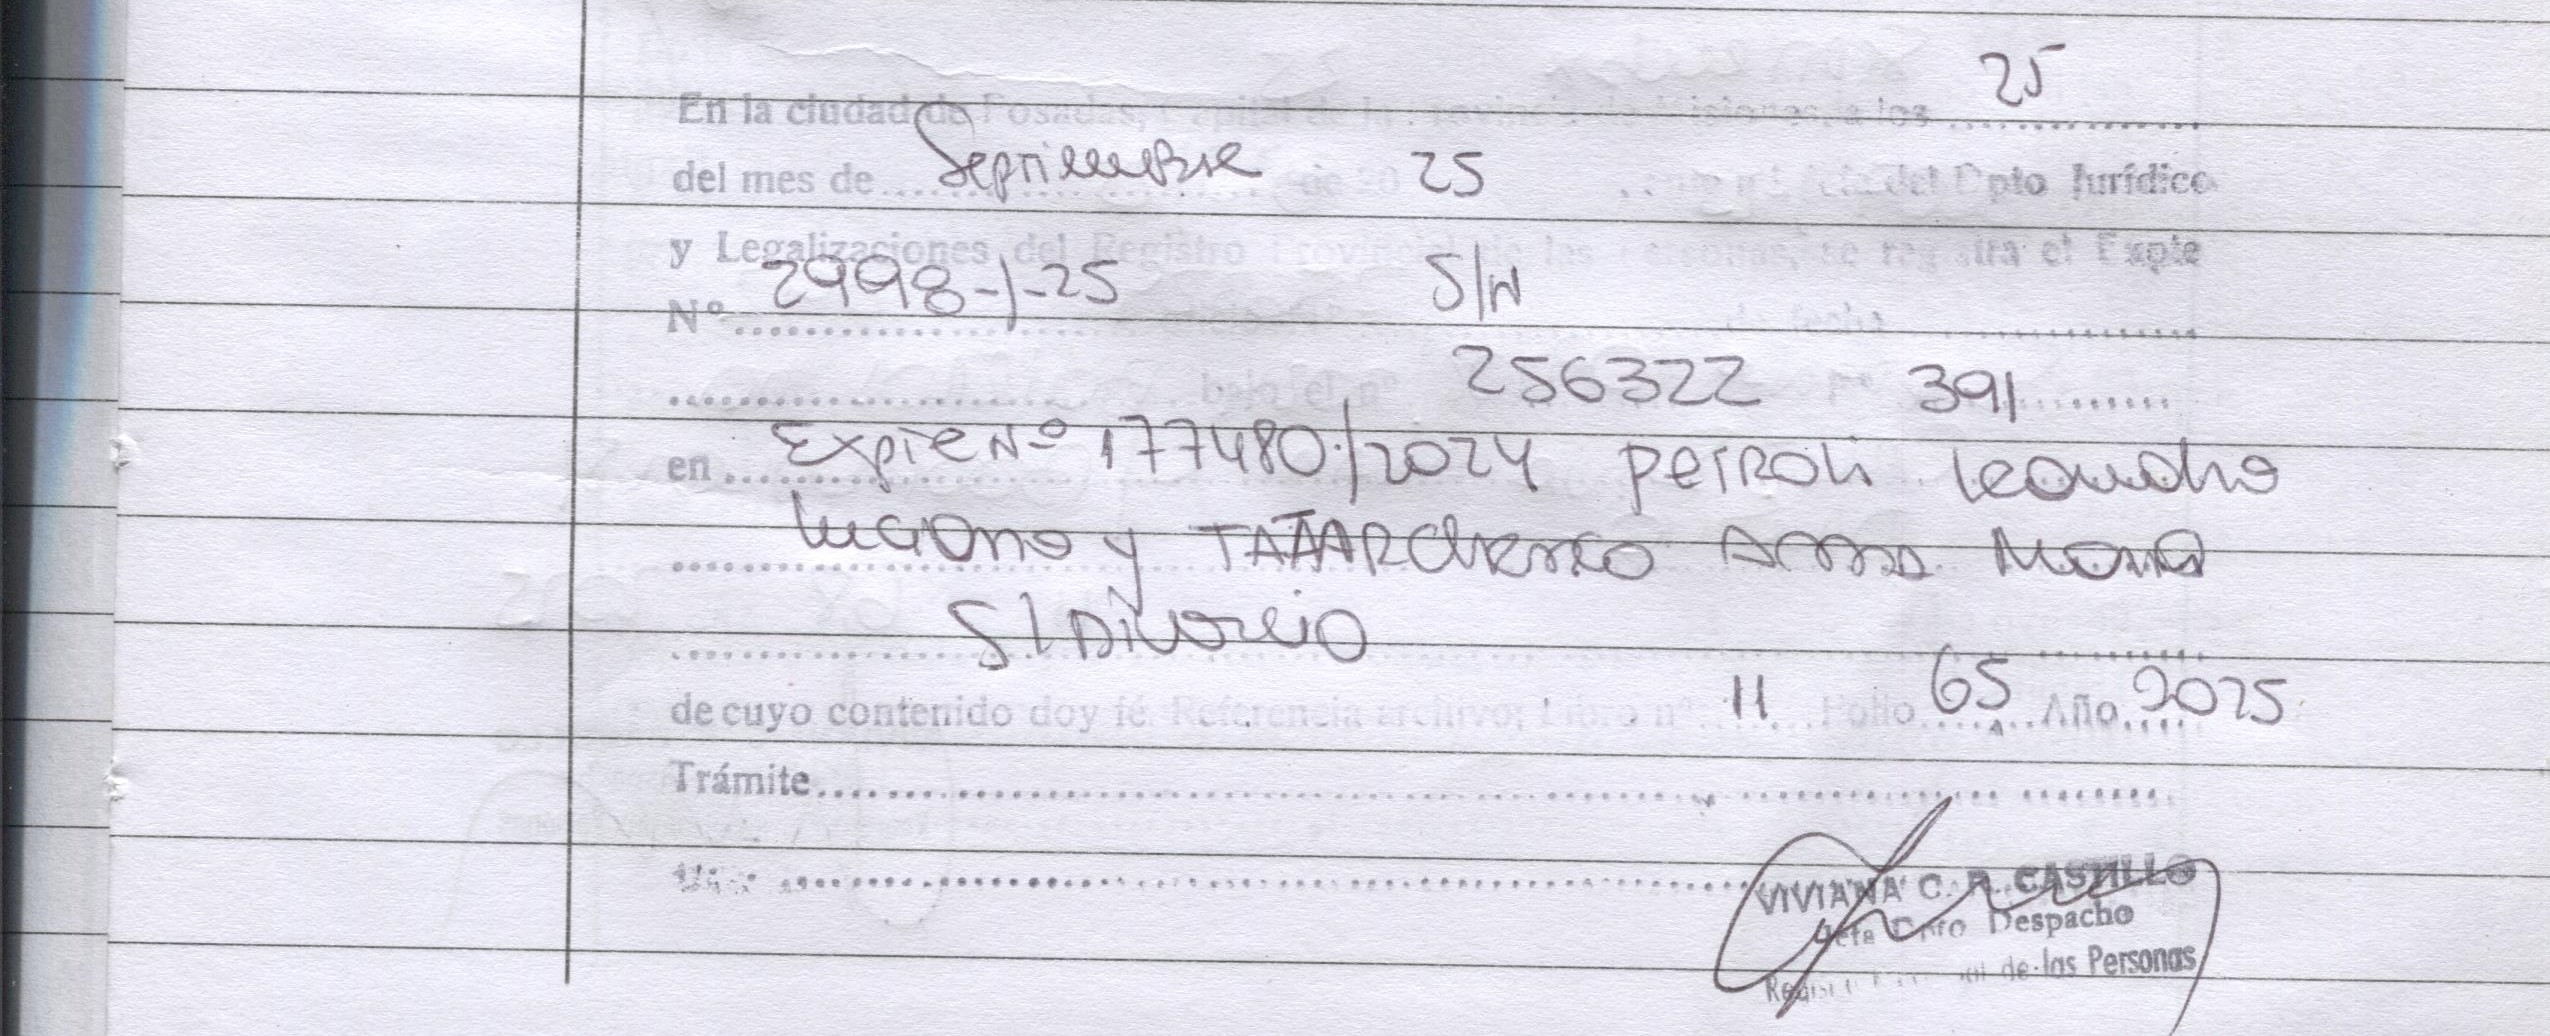 En la ciudad de Posadas, Capital de la Provincia de Misiones, a los 25
del mes de Septiembre de 20 25 Dpto Jurídico
y Legalizaciones del Registro Provincial de las Personas, se registra el Expte
N° 2998-J-25 S/N de fecha
bajo el n° 256322 391
en Expte Nº 177480/2024 Petroli Leandro
Luciano y TATARCHENCO Anna Maria
S/ Divorcio
de cuyo contenido doy fé. Referencia archivo; Libro n° 11 Folio 65 Año 2025
Trámite
VIVIANA C. R. CASTILLO
Jefa Dpto Despacho
de las Personas